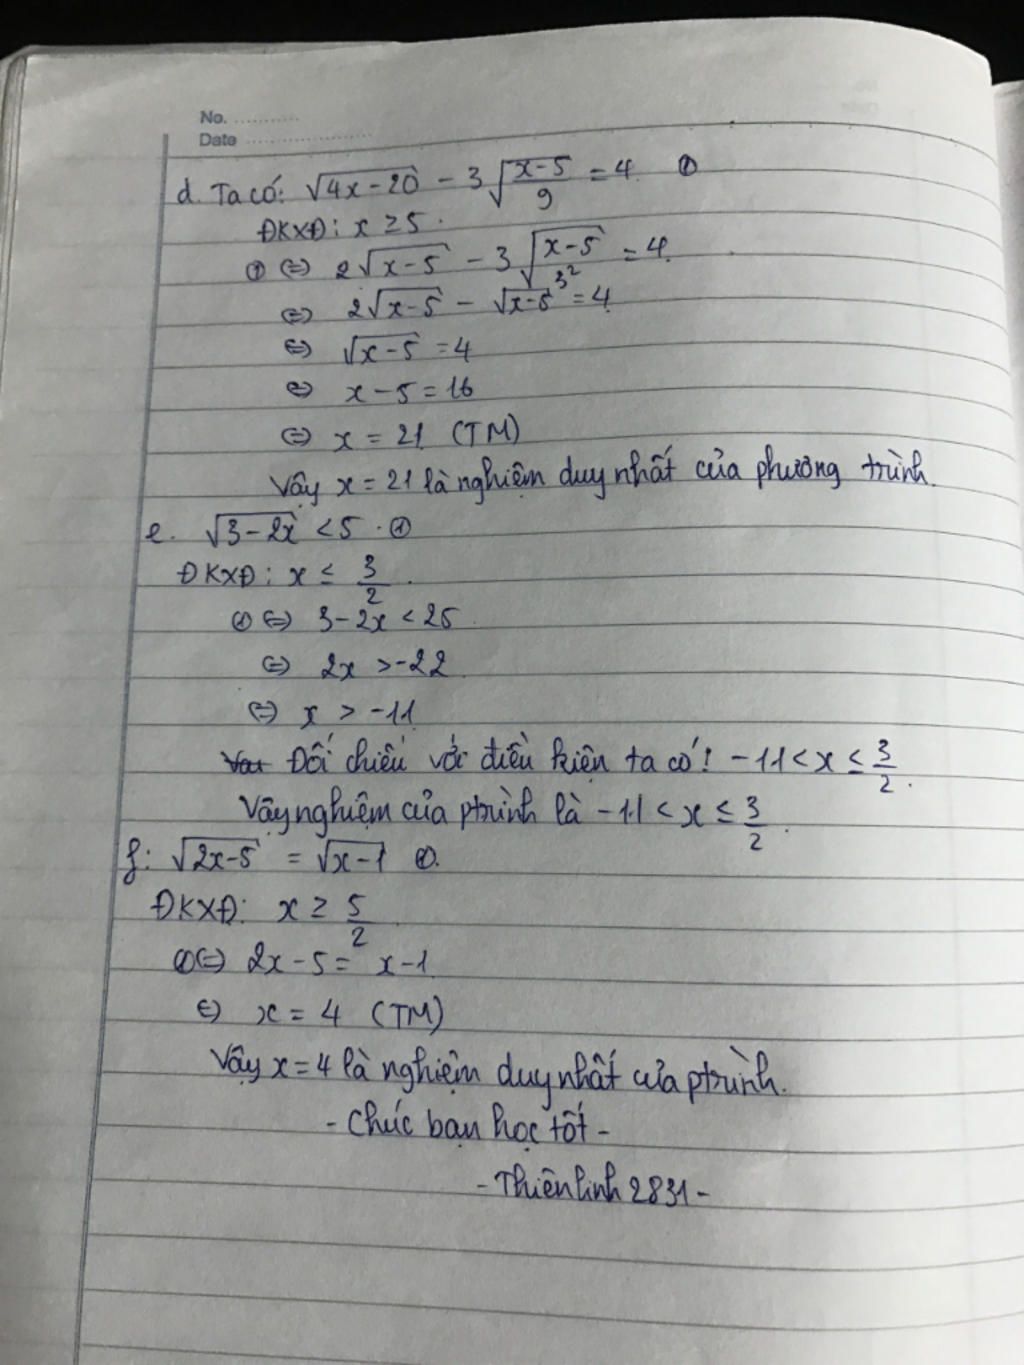 No. ...........
Date .....................
d. Ta có: √(4x-20) - 3√((x-5)/9) = 4 ①
ĐKXĐ: x ≥ 5.
① ⇔ 2√(x-5) - 3√((x-5)/3²) = 4
⇔ 2√(x-5) - √(x-5) = 4
⇔ √(x-5) = 4
⇔ x - 5 = 16
⇔ x = 21 (TM)
Vậy x = 21 là nghiệm duy nhất của phương trình.
e. √(3-2x) < 5 . ①
ĐKXĐ: x ≤ 3/2 .
① ⇔ 3-2x < 25
⇔ 2x > -22
⇔ x > -11
Đối chiếu với điều kiện ta có! -11 < x ≤ 3/2 .
Vậy nghiệm của ptrình là -11 < x ≤ 3/2 .
f: √(2x-5) = √(x-1) ①.
ĐKXĐ: x ≥ 5/2
① ⇔ 2x - 5 = x - 1
⇔ x = 4 (TM)
Vậy x = 4 là nghiệm duy nhất của ptrình.
- Chúc bạn học tốt -
- Thiênlinh 2831 -